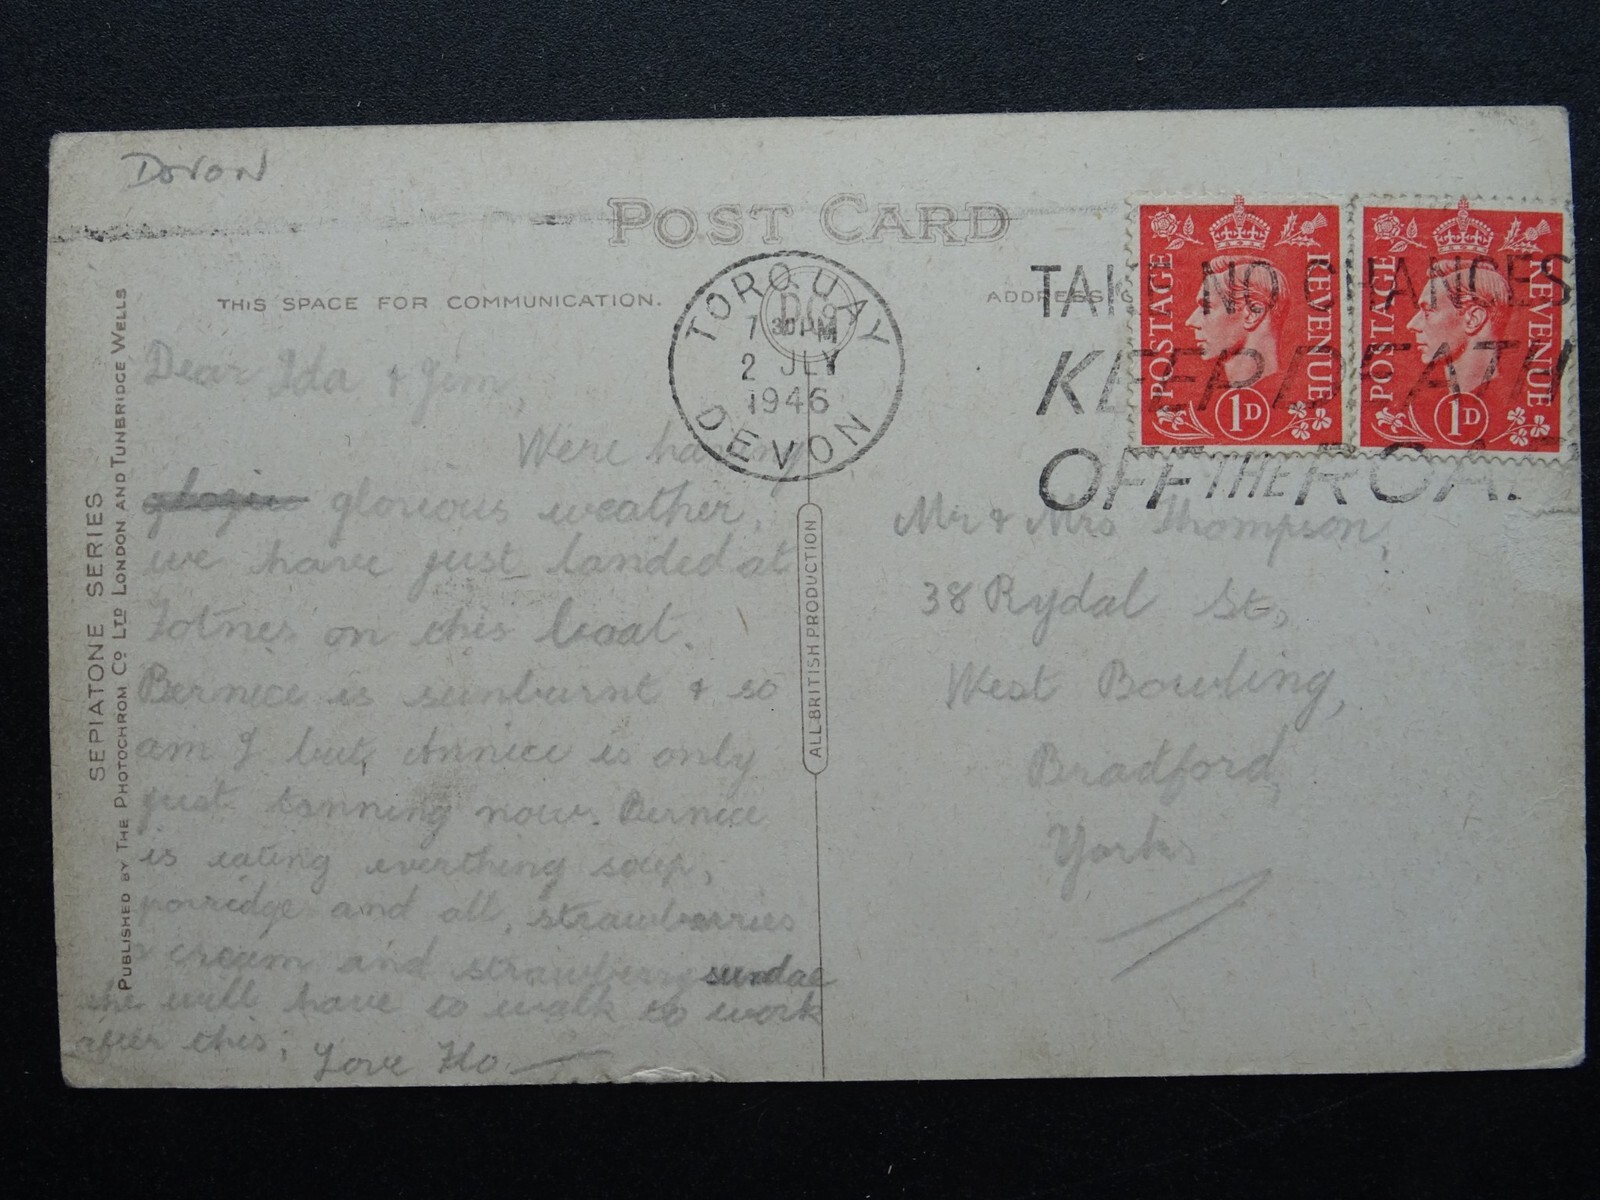 Devon
POST CARD
THIS SPACE FOR COMMUNICATION.
ADDRESS
TORQUAY
7 30 PM
2 JLY
1946
DEVON
TAKE NO CHANCES
KEEP DEATH
OFF THE ROAD
POSTAGE REVENUE
1D
POSTAGE REVENUE
1D
SEPIATONE SERIES
PUBLISHED BY THE PHOTOCHROM CO LTD LONDON AND TUNBRIDGE WELLS
ALL BRITISH PRODUCTION
Dear Ida & Jim,
Were having
glorious weather,
we have just landed at
Totnes on this boat.
Bernice is sunburnt & so
am I but Annice is only
just tanning now. Bernice
is eating everthing soup,
porridge and all, strawberries
& cream and strawberry sundae
she will have to walk to work
after this; Love Flo.
Mr & Mrs Thompson,
38 Rydal St,
West Bowling,
Bradford,
Yorks